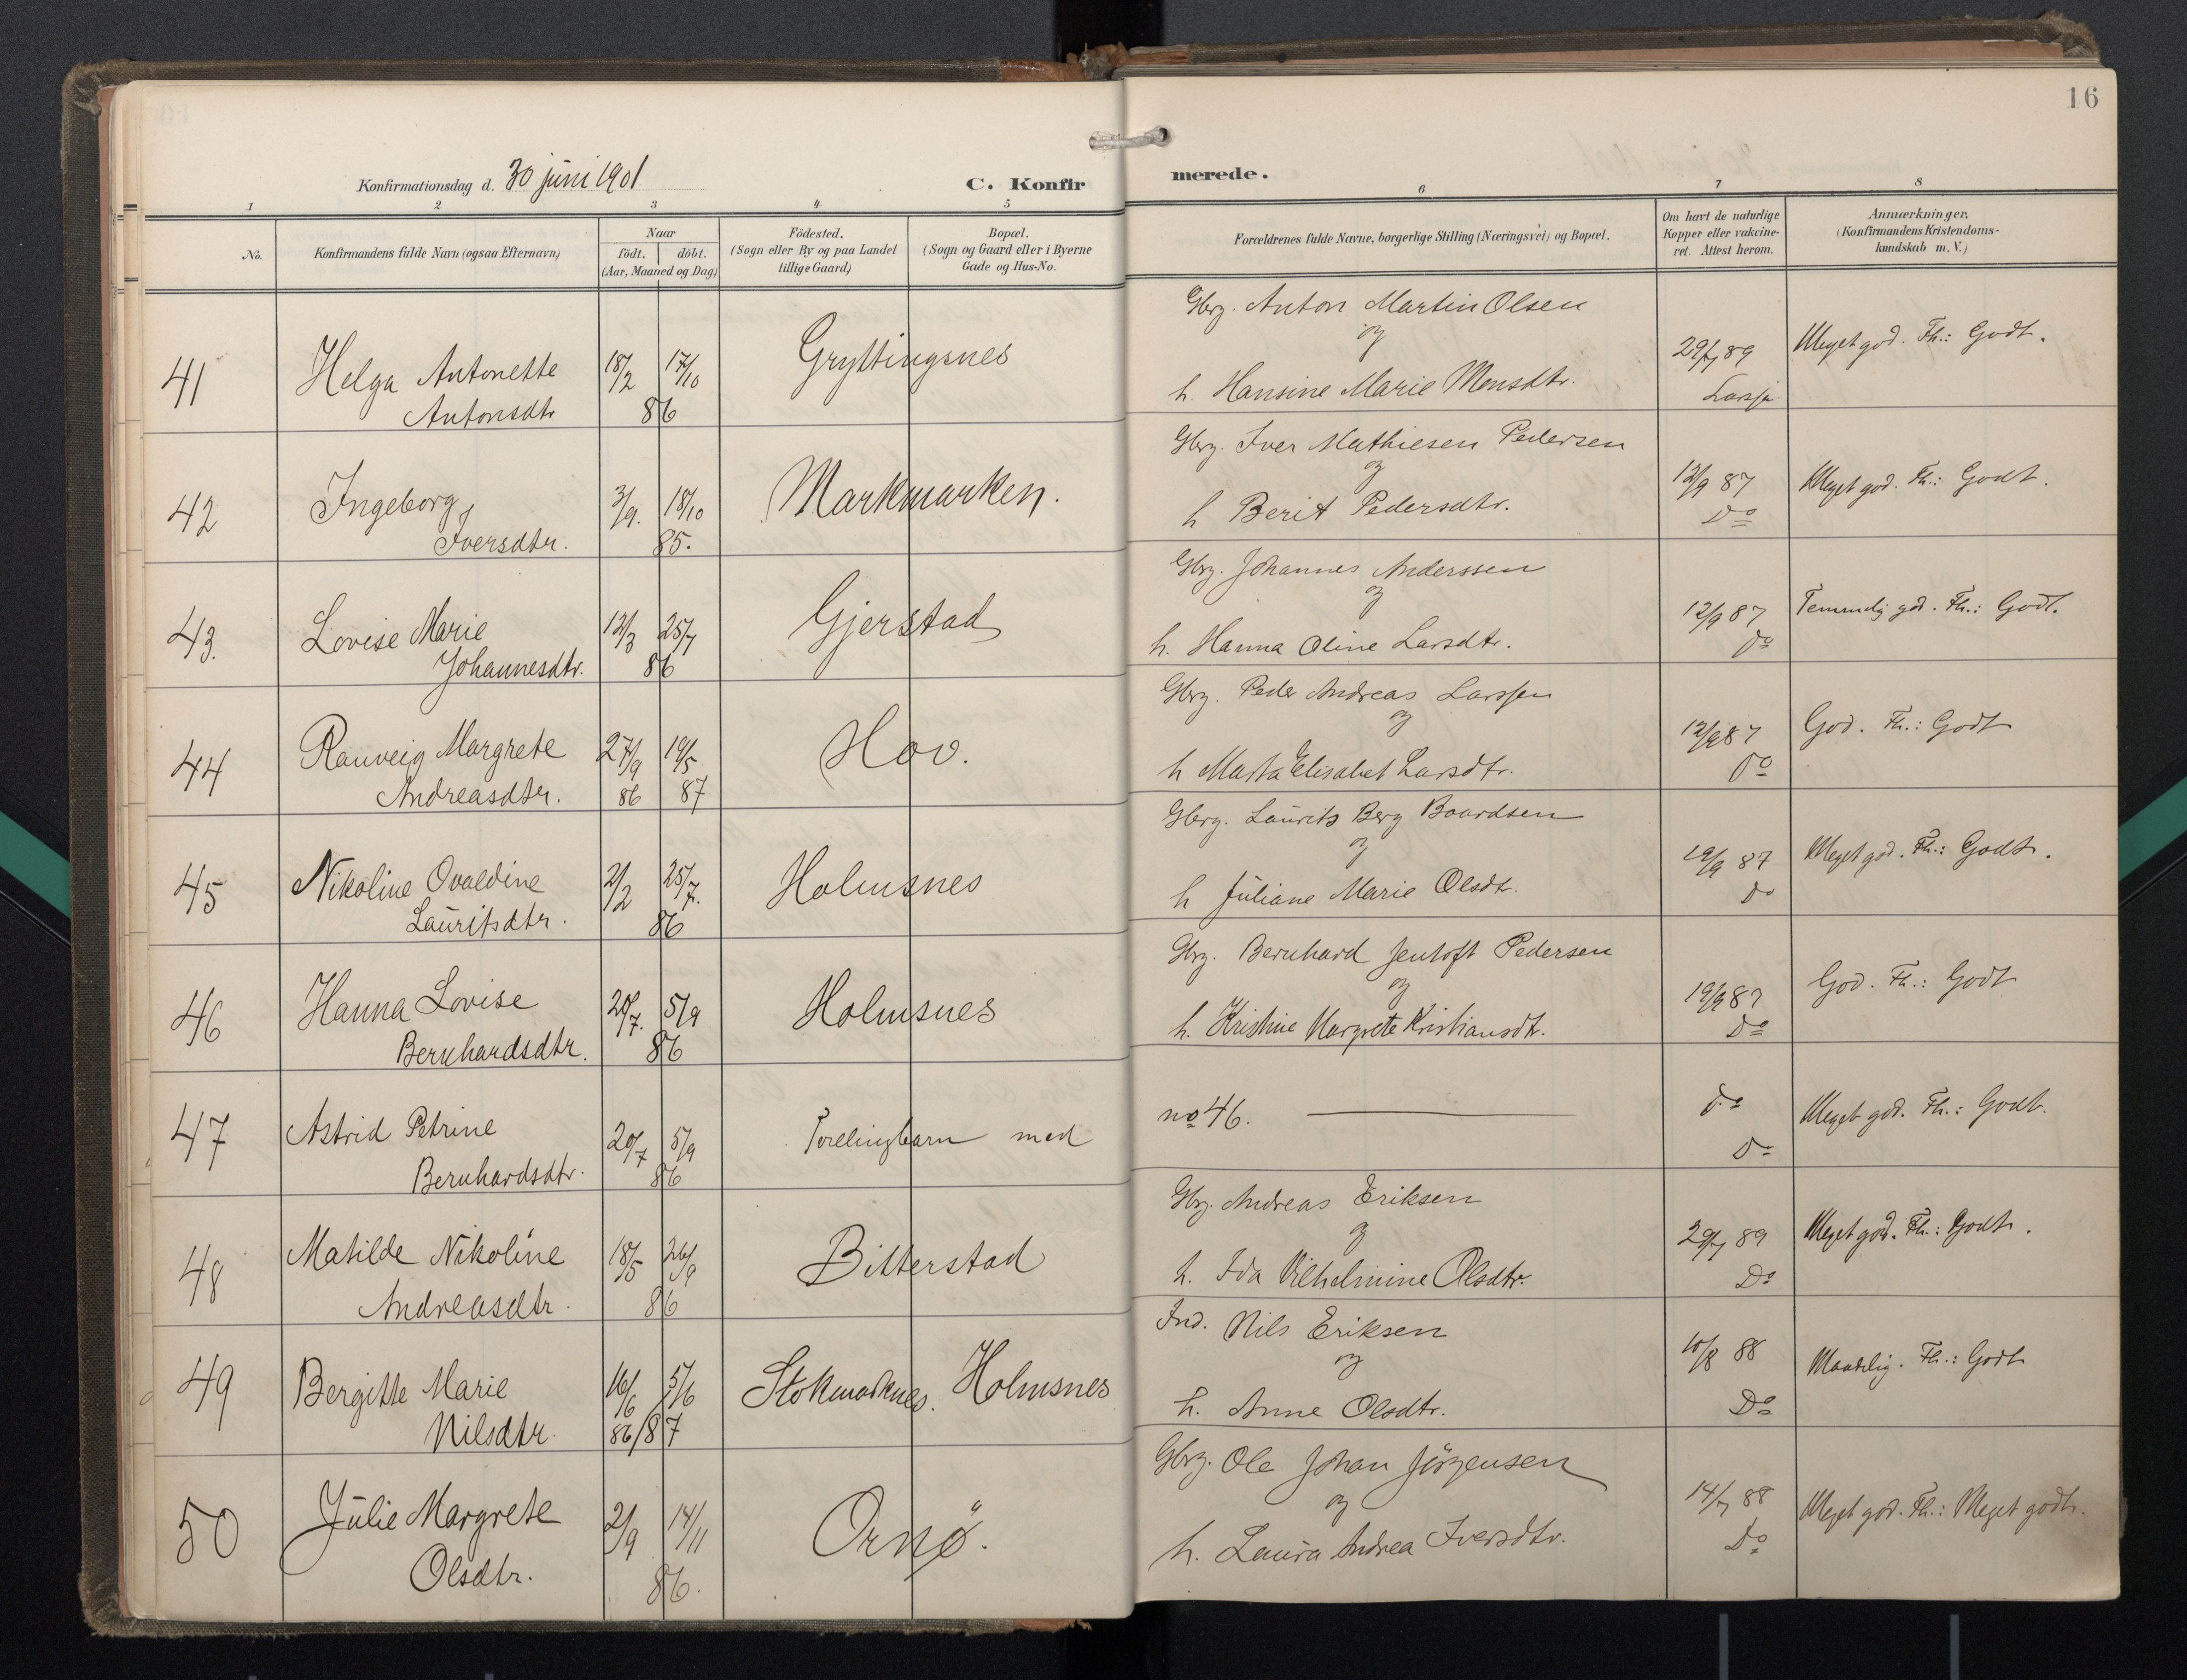 16
Konfirmationsdag d. 30 juni 1901
C. Konfirmerede.
1 2 3 4 5 6 7 8
No.
Konfirmandens fulde Navn (ogsaa Efternavn)
Naar
födt. döbt.
(Aar, Maaned og Dag)
Födested.
(Sogn eller By og paa Landet
tillige Gaard)
Bopæl.
(Sogn og Gaard eller i Byerne
Gade og Hus-No.
Forældrenes fulde Navne, borgerlige Stilling (Næringsvei) og Bopæl.
Om havt de naturlige
Kopper eller vakcine-
ret. Attest herom.
Anmærkninger.
(Konfirmandens Kristendoms-
kundskab m. V.)
41 Helga Antonette 18/2 17/10 Gryttingsnes
Antonsdtr 86
Gbrg. Anton Martin Olsen
og
h. Hansine Marie Monsdtr.
29/7 89
Meget god. Fh.: Godt.
42 Ingeborg 3/9. 18/10 Markmarken.
Iversdtr. 85.
Gbrg. Iver Mathiesen Pedersen
og
h Berit Pedersdtr.
12/9 87
Do
Meget god. Fh.: Godt.
43. Lovise Marie 12/3 25/7 Gjerstad
Johannesdtr. 86
Gbrg. Johannes Anderssen
og
h. Hanna Oline Larsdtr.
12/9 87
do
Temmelig god. Fh.: Godt.
44 Ranveig Margrete 27/9 19/5 Hov.
Andreasdtr. 86 87
Gbrg. Peder Andreas Larssen
og
h Marta Elisabet Larsdtr.
12/9 87
do
God. Fh.: Godt
45 Nikoline Ovaldine 2/2 25/7. Holmsnes
Lauritsdtr. 86
Gbrg. Laurits Berg Baardsen
og
h Juliane Marie Olsdt.
19/9 87
do
Meget god. Fh.: Godt.
46 Hanna Lovise 20/7. 5/9 Holmsnes
Bernhardsdtr. 86
Gbrg. Bernhard Jentoft Pedersen
og
h. Kristine Margrete Kristiansdt.
19/9 87
Do
God. Fh.: Godt
47 Astrid Petrine 20/7 5/9 Tvellingbarn med
Bernhardsdtr. 86
no 46.
do
do
Meget god. Fh.: Godt.
48 Matilde Nikoline 18/5 26/9 Bitterstad
Andreasdtr. 86
Gbrg. Andreas Eriksen
og
h. Ida Vilhelmine Olsdtr.
29/7 89
Do
Meget god. Fh.: Godt.
49 Bergitte Marie 16/6 5/6 Stokmarknes. Holmsnes
Nilsdtr. 86/87
Ind. Nils Eriksen
og
h. Anne Olsdtr.
10/8 88
Do
Maadelig. Fh.: Godt
50 Julie Margrete 2/9 14/11 Ornö.
Olsdtr. 86.
Gbrg. Ole Johan Jörgensen
og
h. Laura Andrea Iversdtr.
14/7 88
do
Meget god. Fh.: Meget godt.